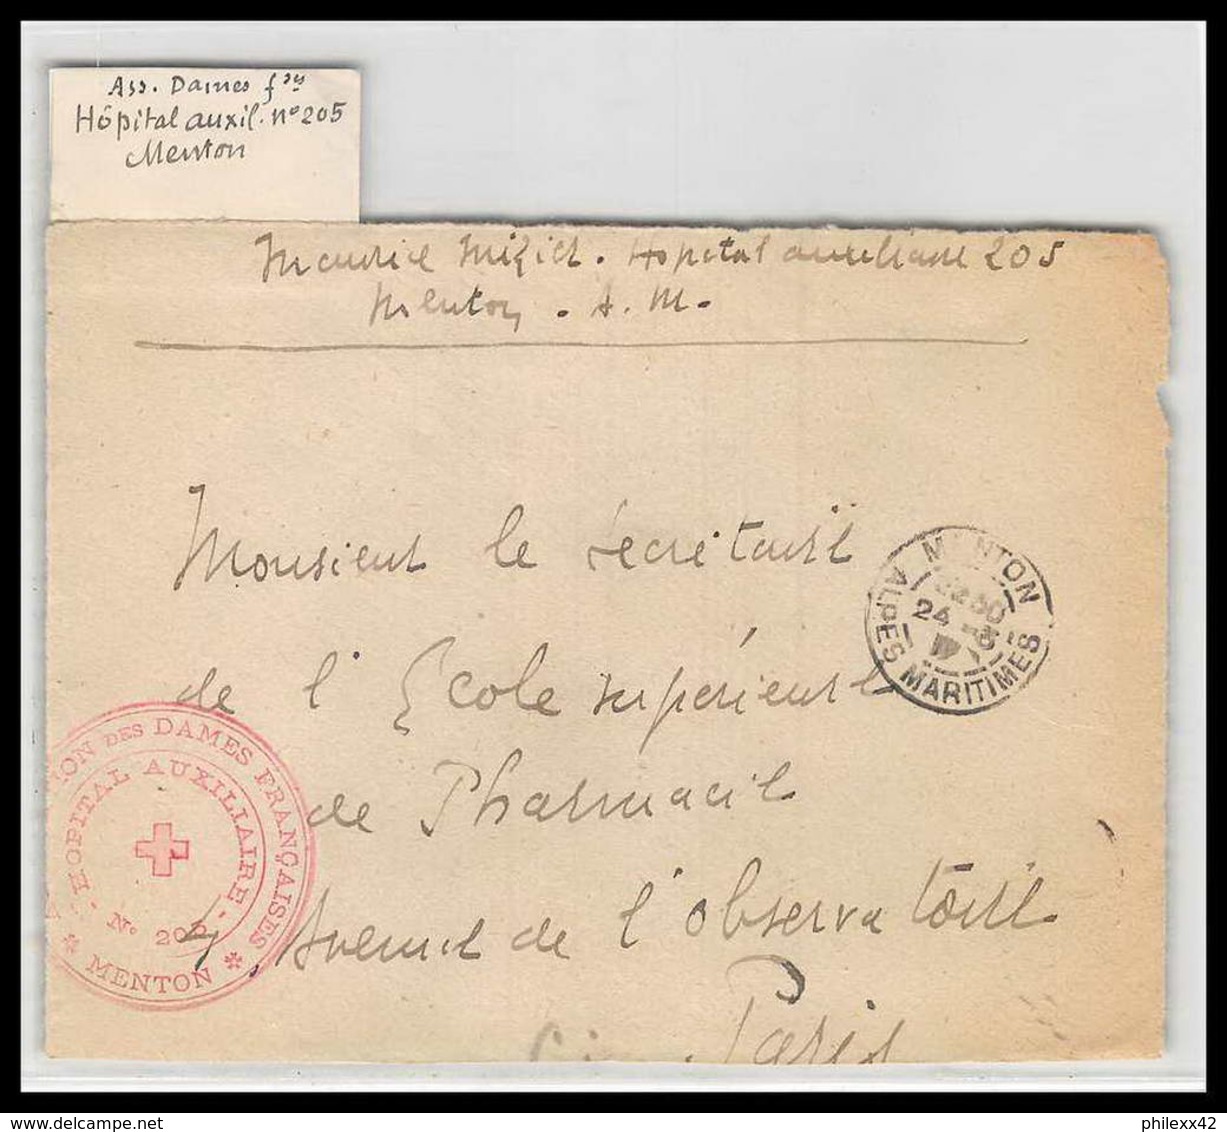 Ass. Dames fses
Hôpital auxil. no 205
Menton
Hopital auxiliaire 205
Menton. A. M.
Monsieur le secrétaire
de l'École supérieure
de Pharmacie
4, Avenue de l'observatoire
Paris
MENTON
24
ALPES MARITIMES
ION DES DAMES FRANÇAISES
HOPITAL AUXILIAIRE
No 205
* MENTON *
philexx42